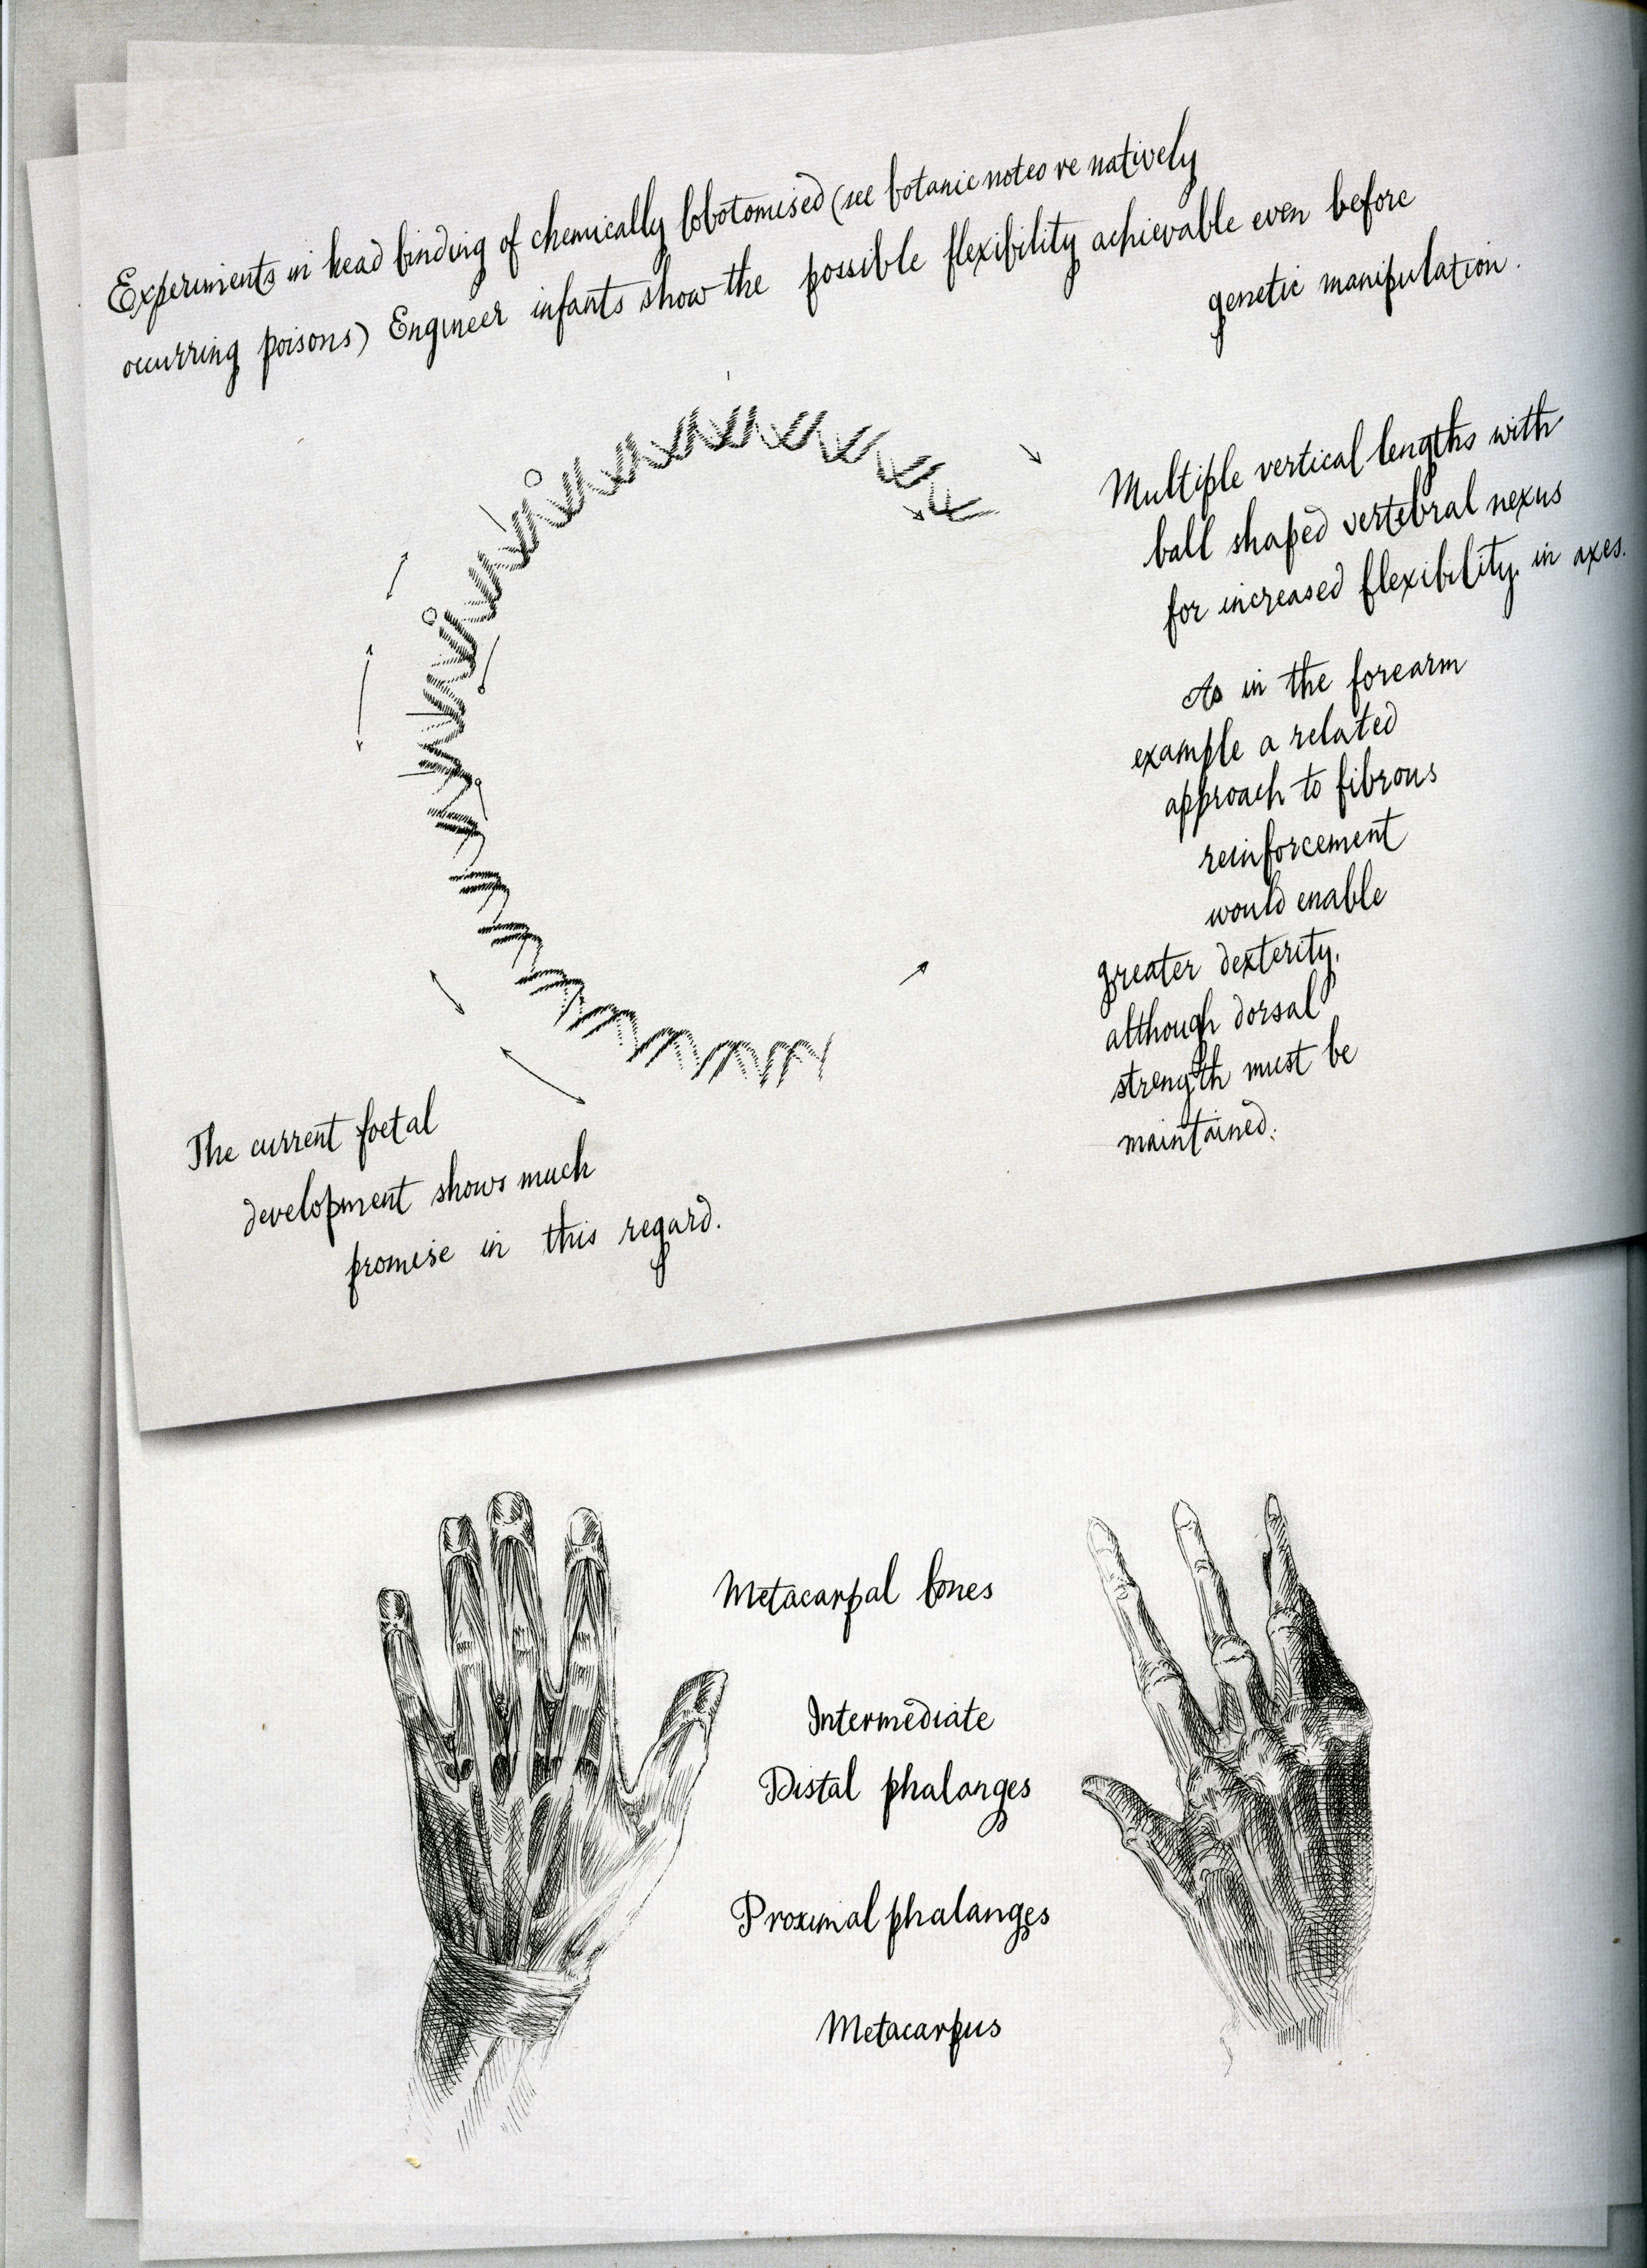 Experiments in head binding of chemically lobotomised (see botanic notes re natively
occurring poisons) Engineer infants show the possible flexibility achievable even before
genetic manipulation.
Multiple vertical lengths with
ball shaped vertebral nexus
for increased flexibility in axes.
As in the forearm
example a related
approach to fibrous
reinforcement
would enable
greater dexterity,
although dorsal
strength must be
maintained.
The current foetal
development shows much
promise in this regard.
Metacarpal bones
Intermediate
Distal phalanges
Proximal phalanges
Metacarpus